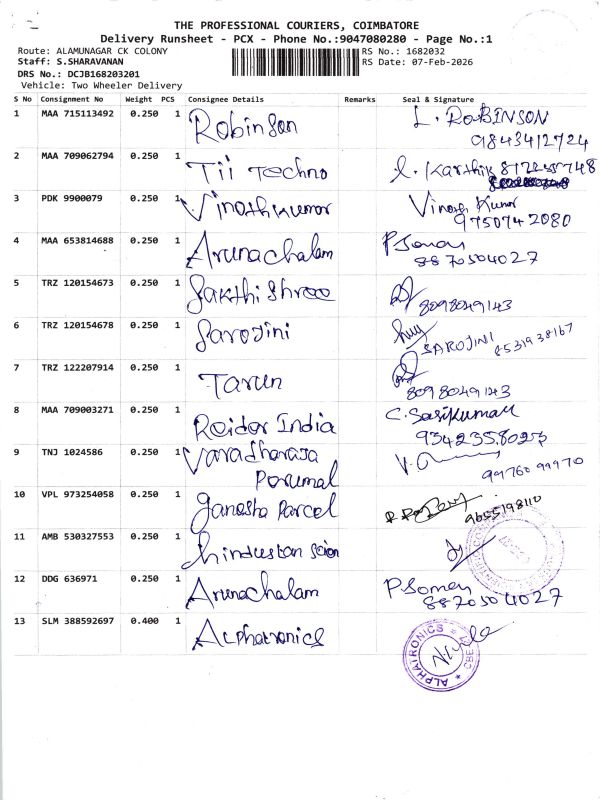 THE PROFESSIONAL COURIERS, COIMBATORE
Delivery Runsheet - PCX - Phone No.:9047080280 - Page No.:1
Route: ALAMUNAGAR CK COLONY RS No.: 1682032
Staff: S.SHARAVANAN RS Date: 07-Feb-2026
DRS No.: DCJB168203201
Vehicle: Two Wheeler Delivery
S No Consignment No Weight PCS Consignee Details Remarks Seal & Signature
1 MAA 715113492 0.250 1 Robinson L. RoBINSON
9843412724
2 MAA 709062794 0.250 1 Tii Techno Karthik
3 PDK 9900079 0.250 1 Vinothkumar Vinoth Kumar
9750742080
4 MAA 653814688 0.250 1 Arunachalam P Soman
8870504027
5 TRZ 120154673 0.250 1 Sakthi Shree 8098049143
6 TRZ 120154678 0.250 1 Sarojini SAROJINI 8531938167
7 TRZ 122207914 0.250 1 Tarun
8098049143
8 MAA 709003271 0.250 1 Reider India C. Sasikumar
9342358023
9 TNJ 1024586 0.250 1 Varadharaja
Perumal 99760 99970
10 VPL 973254058 0.250 1 Ganesha Parcel 9655198110
11 AMB 530327553 0.250 1 hindustan
12 DDG 636971 0.250 1 Arunachalam P Soman
8870504027
13 SLM 388592697 0.400 1 Alphatronics
ALPHATRONICS CBE